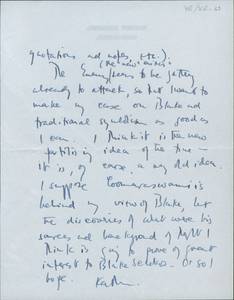 quotations and notes, etc.).
The Enemy seems to be getting
already to attack, so that I want to
make my case on Blake and
traditional symbolism as good as
I can. I think it is the new
fertilising idea of the time —
it is, of course, a very old idea.
I suppose Coomaraswami is
behind my view of Blake, but
the discoveries of what were his
sources and background of thought I
think is going to prove of great
interest to Blake scholars — or so I
hope.